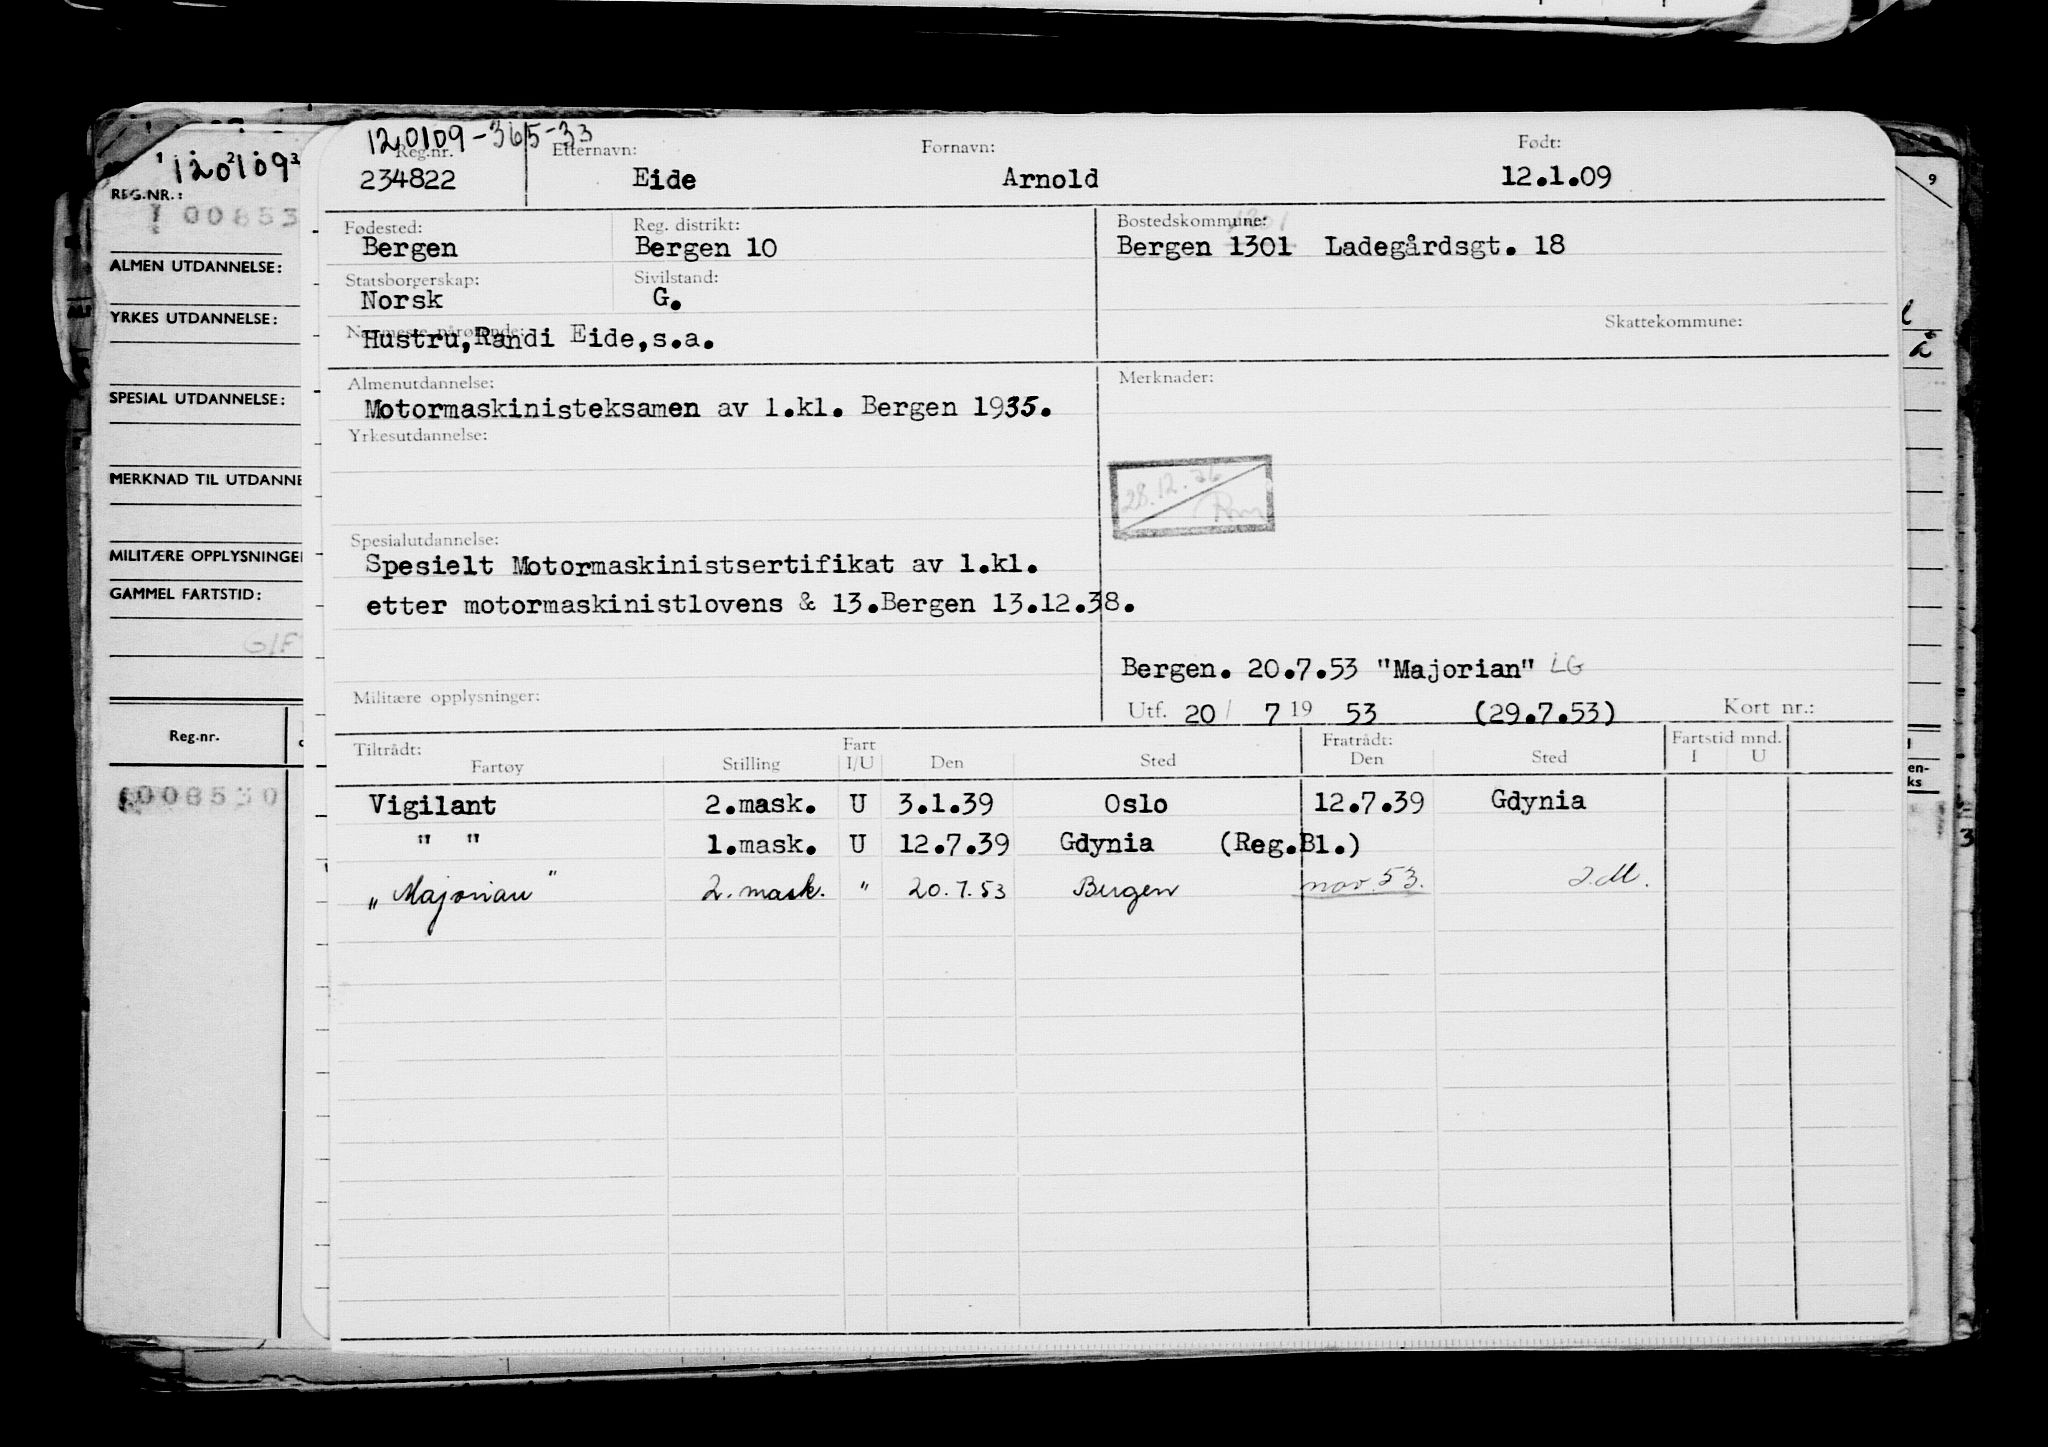 120109-365-33
Reg.nr. Etternavn: Fornavn: Født:
234822 Eide Arnold 12.1.09
Fødested: Reg. distrikt: Bostedskommune: 1301
Bergen Bergen 10 Bergen 1301 Ladegårdsgt. 18
Statsborgerskap: Sivilstand:
Norsk G.
Nærmeste pårørende: Skattekommune:
Hustru, Randi Eide, s.a.
Almenutdannelse: Merknader:
Motormaskinisteksamen av 1.kl. Bergen 1935.
Yrkesutdannelse:
28.12.
Spesialutdannelse:
Spesielt Motormaskinistsertifikat av 1.kl.
etter motormaskinistlovens & 13.Bergen 13.12.38.
Bergen. 20.7.53 "Majorian" LG
Militære opplysninger: Utf. 20/ 7 19 53 (29.7.53) Kort nr.:
Tiltrådt: Fart Fratrådt: Fartstid mnd.
Fartøy Stilling I/U Den Sted Den Sted I U
Vigilant 2.mask. U 3.1.39 Oslo 12.7.39 Gdynia
" " 1.mask. U 12.7.39 Gdynia (Reg.Bl.)
„Majorian" 2. mask. " 20.7.53 Bergen nov. 53. J.M.
1 120109 3
REG.NR.:
1 00853
ALMEN UTDANNELSE:
YRKES UTDANNELSE:
SPESIAL UTDANNELSE:
MERKNAD TIL UTDANNE
MILITÆRE OPPLYSNINGE
GAMMEL FARTSTID:
G/F
Reg.nr.
1008530
9
en-
ks
3